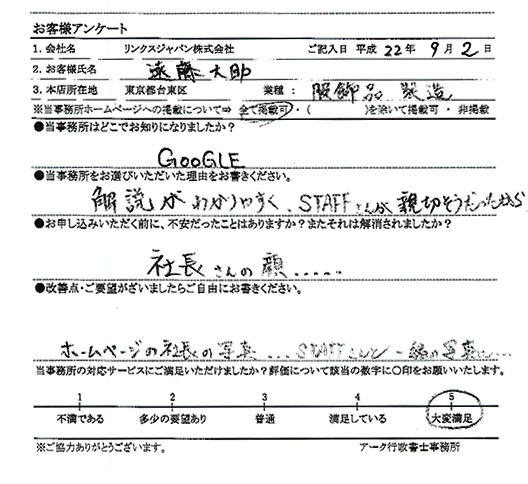 お客様アンケート
1. 会社名 リンクスジャパン株式会社 ご記入日 平成 22年 9月 2日
2. お客様氏名 遠藤大助
3. 本店所在地 東京都台東区 業種： 服飾品 製造
※当事務所ホームページへの掲載について⇒ 全て掲載可・( )を除いて掲載可 ・ 非掲載
●当事務所はどこでお知りになりましたか？
GOOGLE
●当事務所をお選びいただいた理由をお書きください。
解説がわかりやすく、STAFFさんが親切そうだったから
●お申し込みいただく前に、不安だったことはありますか？またそれは解消されましたか？
社長さんの顔.....
●改善点・ご要望がざいましたらご自由にお書きください。
ホームページの社長の写真...STAFFさんと一緒の写真に...
当事務所の対応サービスにご満足いただけましたか？評価について該当の数字に○印をお願いいたします。
1 2 3 4 5
不満である 多少の要望あり 普通 満足している 大変満足
※ご協力ありがとうございます。 アーク行政書士事務所